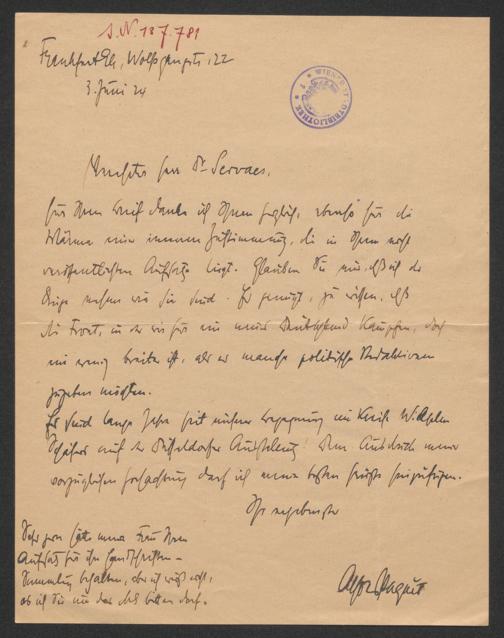 J.N. 137.781
Frankfurt a/M, Wolfsgangstr. 122
3. Juni 24
WIENER STADTBIBLIOTHEK
Verehrter Herr Dr Servaes,
für Ihren Brief danke ich Ihnen herzlich, ebenso für die
Wärme einer inneren Zustimmung, die in Ihrem noch
veröffentlichten Aufsatze liegt. Glauben Sie mir, daß ich die
Dinge nehme wie Sie sind. Es genügt, zu wissen, daß
die Front, in der wir für ein neues Deutschland kämpfen, doch
ein wenig breiter ist, als es manche politische Redaktionen
zugeben möchten.
Es sind lange Jahre seit unserer Begegnung im Kreise Wilhelm
Schäfers auf der Düsseldorfer Ausstellung! Dem Ausdruck meiner
vorzüglichen Hochachtung darf ich meine besten Grüße hinzufügen.
Ihr ergebenster
Alfons Paquet
Sehr gern hätte meine Frau Ihren
Aufsatz für ihre Handschriften-
Sammlung behalten, aber ich weiß nicht,
ob ich Sie um das MS bitten darf.